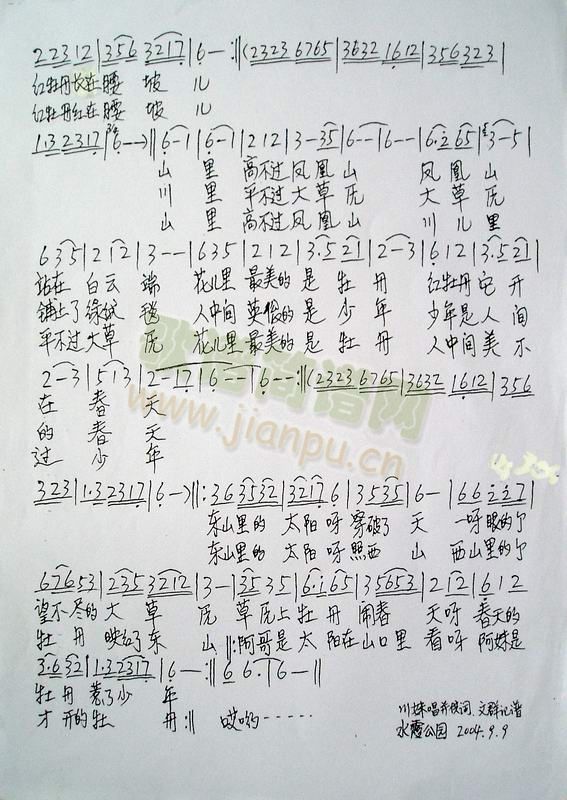 2 2 3 1 2 | 3 5 6 3 2 1 7 | 6 — :‖ ( 2 3 2 3 6 7 6 5 | 3 6 3 2 1 6 1 2 | 3 5 6 3 2 3 |
红牡丹长在腰 坡 儿
红牡丹红在腰 坡 儿
1·3 2 3 1 7 | 6 — ) ‖ 6 — 1 | 6 — 1 | 2 1 2 | 3 — 3 5 | 6 — — | 6 — — | 6·2 6 5 | 3 — 5 |
山 里 高不过 凤凰 山 凤凰 山
川 里 平不过 大草 厎 大草 厎
山 里 高不过 凤凰 山 川儿 里
6 3 5 | 2 1 2 | 3 — — | 6 3 5 | 2 1 2 | 3·5 2 1 | 2 — 3 | 6 1 2 | 3·5 2 1 |
站在 白云 端 花儿里 最美的 是 牡 丹 红牡丹 它 开
铺上了 绿绒 毯 人中间 英俊的 是 少 年 少年是 人 间
平不过 大草 厎 花儿里 最美的 是 牡 丹 人中间 美 不
2 — 3 | 5 1 3 | 2 — 1 7 | 6 — — | 6 — — :‖ ( 2 3 2 3 6 7 6 5 | 3 6 3 2 1 6 1 2 | 3 5 6
在 春 天
的 春 天
过 少 年
3 2 3 | 1·3 2 3 1 7 | 6 — ) ‖: 3 6 3 5 3 2 | 3 2 1 7 6 | 3 5 3 5 | 6 — | 6 6 2 2 7 |
东山里的 太阳呀 穿破了 天 一呀眼的个
东山里的 太阳呀 照西 山 西山里的个
6 7 6 5 3 | 2 3 5 3 2 1 2 | 3 — | 3 5 3 5 | 6·1 6 5 | 3 5 6 5 3 | 2 1 2 | 6 1 2
望不尽的 大 草 厎 草厎上 牡 丹 闹春 天呀 春天的
牡 丹 映红了 东 山 ‖: 阿哥是 太 阳在 山口里 看呀 阿妹是
3·6 3 2 | 1·3 2 3 1 7 | 6 — :‖ 6 6· | 6 — ‖
牡丹 惹了少 年
才 开的 牡 丹 :‖ 哎哟······
川妹唱并供词、文群记谱
水磨公园 2004.9.9
歌谱简谱网
www.jianpu.cn